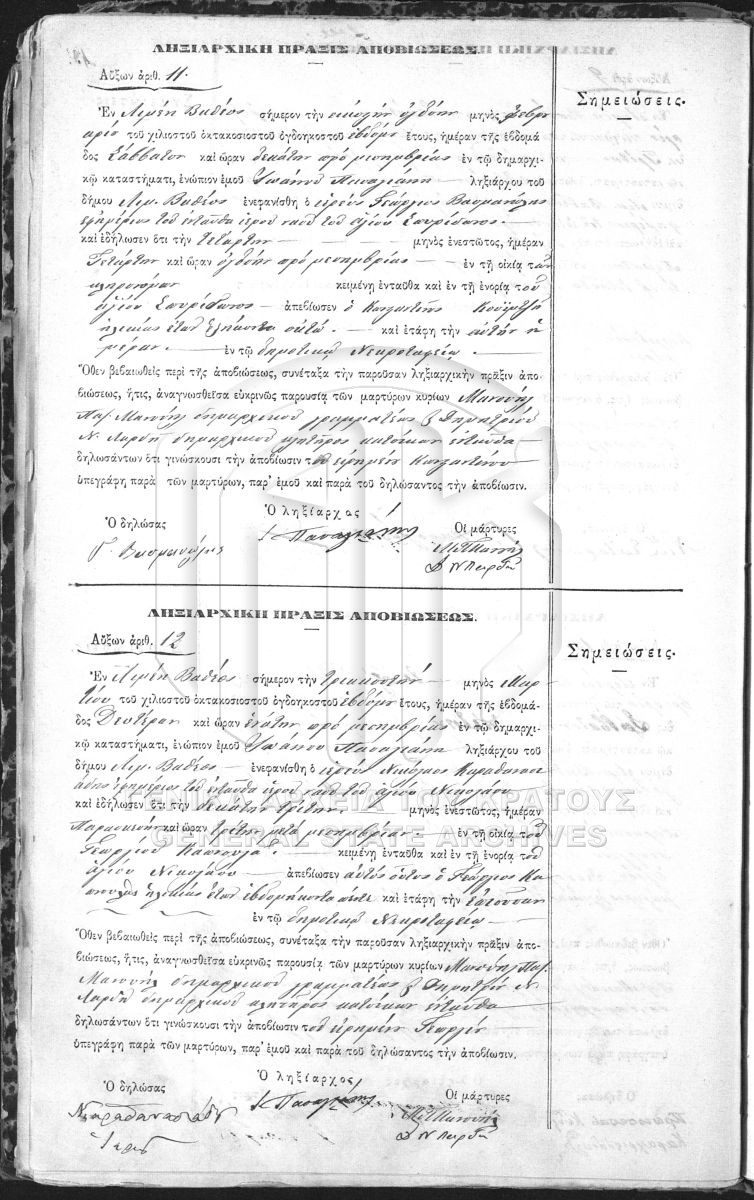 ΛΗΞΙΑΡΧΙΚΗ ΠΡΑΞΙΣ ΑΠΟΒΙΩΣΕΩΣ.
Αὔξων ἀριθ. 11.
Σημειώσεις.
Ἐν Λιμένι Βαθέος σήμερον τὴν εἰκοστὴν ὀγδόην μηνὸς Φεβρου
αρίου τοῦ χιλιοστοῦ ὀκτακοσιοστοῦ ὀγδοηκοστοῦ ἑβδόμου ἔτους, ἡμέραν τῆς ἑβδομά
δος Σάββατον καὶ ὥραν δεκάτην πρὸ μεσημβρίας ἐν τῷ δημαρχι-
κῷ καταστήματι, ἐνώπιον ἐμοῦ Ἰωάννου ληξιάρχου τοῦ
δήμου Λιμ. Βαθέος ἐνεφανίσθη ὁ ἱερεὺς Γεώργιος
ἐφημέριος τοῦ ἐνταῦθα ἱεροῦ ναοῦ τοῦ ἁγίου Σπυρίδωνος
καὶ ἐδήλωσεν ὅτι τὴν τετάρτην μηνὸς ἐνεστῶτος, ἡμέραν
Τετάρτην καὶ ὥραν ὀγδόην πρὸ μεσημβρίας ἐν τῇ οἰκίᾳ τῶν
κληρονόμων κειμένῃ ἐνταῦθα καὶ ἐν τῇ ἐνορίᾳ τοῦ
ἁγίου Σπυρίδωνος ἀπεβίωσεν ὁ Κωνσταντῖνος
ἡλικίας ἐτῶν ἑξήκοντα ὀκτώ. καὶ ἐτάφη τὴν αὐτὴν ἡ
μέραν. ἐν τῷ δημοτικῷ Νεκροταφείῳ.
Ὅθεν βεβαιωθεὶς περὶ τῆς ἀποβιώσεως, συνέταξα τὴν παροῦσαν ληξιαρχικὴν πρᾶξιν ἀπο-
βιώσεως, ἥτις, ἀναγνωσθεῖσα εὐκρινῶς παρουσίᾳ τῶν μαρτύρων κυρίων Μανουὴλ
Παπ. Μανουὴλ δημαρχικοῦ γραμματέως & Δημητρίου
Ν. δημαρχικοῦ κλητῆρος κατοίκων ἐνταῦθα
δηλωσάντων ὅτι γινώσκουσι τὴν ἀποβίωσιν τοῦ εἰρημένου Κωνσταντίνου
ὑπεγράφη παρὰ τῶν μαρτύρων, παρ' ἐμοῦ καὶ παρὰ τοῦ δηλώσαντος τὴν ἀποβίωσιν.
Ὁ δηλώσας
Ὁ ληξίαρχος
Οἱ μάρτυρες
ΛΗΞΙΑΡΧΙΚΗ ΠΡΑΞΙΣ ΑΠΟΒΙΩΣΕΩΣ.
Αὔξων ἀριθ. 12
Σημειώσεις.
Ἐν Λιμένι Βαθέος σήμερον τὴν τριακοστὴν μηνὸς Μαρ
τίου τοῦ χιλιοστοῦ ὀκτακοσιοστοῦ ὀγδοηκοστοῦ ἑβδόμου ἔτους, ἡμέραν τῆς ἑβδομά-
δος Δευτέραν καὶ ὥραν ἐνάτην πρὸ μεσημβρίας ἐν τῷ δημαρχι-
κῷ καταστήματι, ἐνώπιον ἐμοῦ Ἰωάννου ληξιάρχου τοῦ
δήμου Λιμ. Βαθέος ἐνεφανίσθη ὁ ἱερεὺς Νικόλαος
ἐφημέριος τοῦ ἐνταῦθα ἱεροῦ ναοῦ τοῦ ἁγίου Νικολάου
καὶ ἐδήλωσεν ὅτι τὴν δεκάτην τρίτην. μηνὸς ἐνεστῶτος, ἡμέραν
Παρασκευὴν καὶ ὥραν τρίτην μετὰ μεσημβρίαν. ἐν τῇ οἰκίᾳ τοῦ
Γεωργίου κειμένῃ ἐνταῦθα καὶ ἐν τῇ ἐνορίᾳ τοῦ
ἁγίου Νικολάου ἀπεβίωσεν αὐτὸς οὗτος ὁ Γεώργιος
ἡλικίας ἐτῶν ἑβδομήκοντα πέντε καὶ ἐτάφη τὴν ἐπιοῦσαν
ἐν τῷ δημοτικῷ Νεκροταφείῳ
Ὅθεν βεβαιωθεὶς περὶ τῆς ἀποβιώσεως, συνέταξα τὴν παροῦσαν ληξιαρχικὴν πρᾶξιν ἀπο-
βιώσεως, ἥτις, ἀναγνωσθεῖσα εὐκρινῶς παρουσίᾳ τῶν μαρτύρων κυρίων Μανουὴλ Παπ.
Μανουὴλ δημαρχικοῦ γραμματέως & Δημητρίου Ν.
δημαρχικοῦ κλητῆρος κατοίκων ἐνταῦθα
δηλωσάντων ὅτι γινώσκουσι τὴν ἀποβίωσιν τοῦ εἰρημένου Γεωργίου
ὑπεγράφη παρὰ τῶν μαρτύρων, παρ' ἐμοῦ καὶ παρὰ τοῦ δηλώσαντος τὴν ἀποβίωσιν.
Ὁ δηλώσας
Ὁ ληξίαρχος
Οἱ μάρτυρες
ΓΕΝΙΚΑ ΑΡΧΕΙΑ ΤΟΥ ΚΡΑΤΟΥΣ
GENERAL STATE ARCHIVES